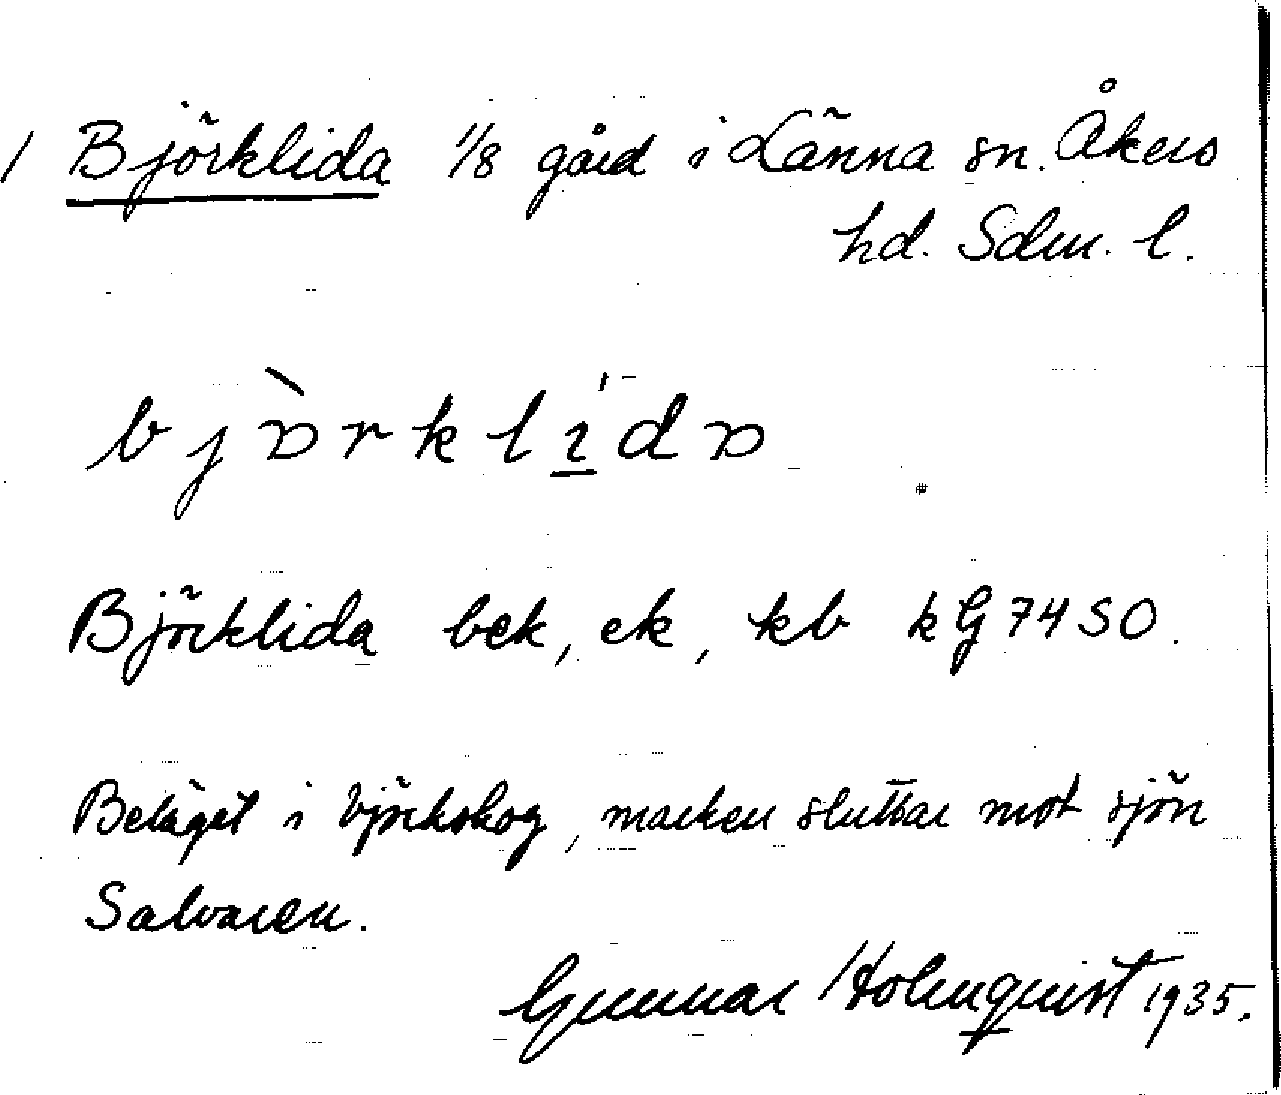 / Björklida 1/8 gård i Länna sn. Åkers
hd. Sdm. l.
bjɒ̀rklı̱́dɒ
Björklida bek, ek, kb kG 74 SO.
Beläget i björkskog, marken sluttar mot sjön
Salvaren.
Gunnar Holmquist 1935.